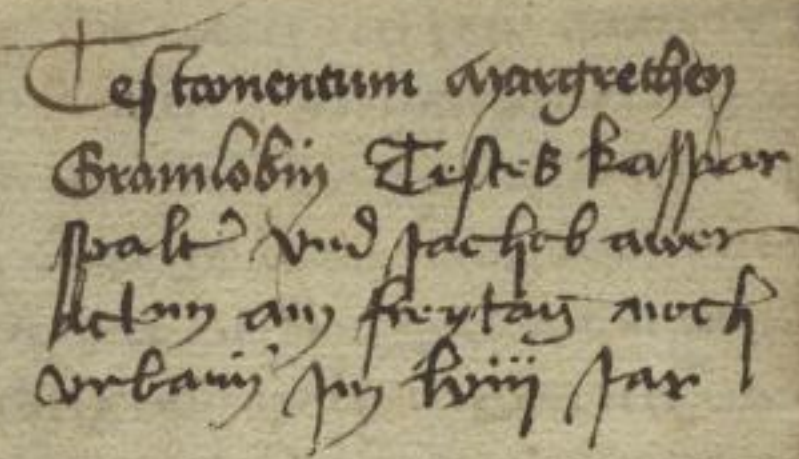 Testamentum Margrethen
Gramlobin Testes kasspar
spalt vnd Jachob awer
Actum am freytag noch
vrbani Jm lviij Jar